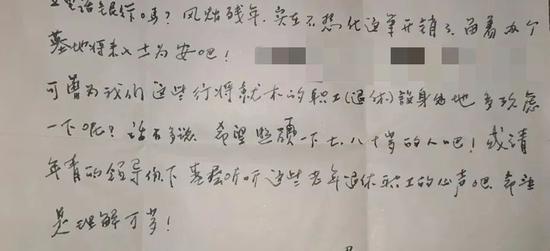 风烛残年,实在不想花这笔开销了,留着办个
墓地将来入土为安吧!
可曾为我们这些行将就木的职工(退休)设身处地多考虑
一下呢?话不多说,希望照顾一下七、八十岁的人吧!或请
年青的领导们下基层听听这些老年退休职工的心声吧,希望
是理解万岁!